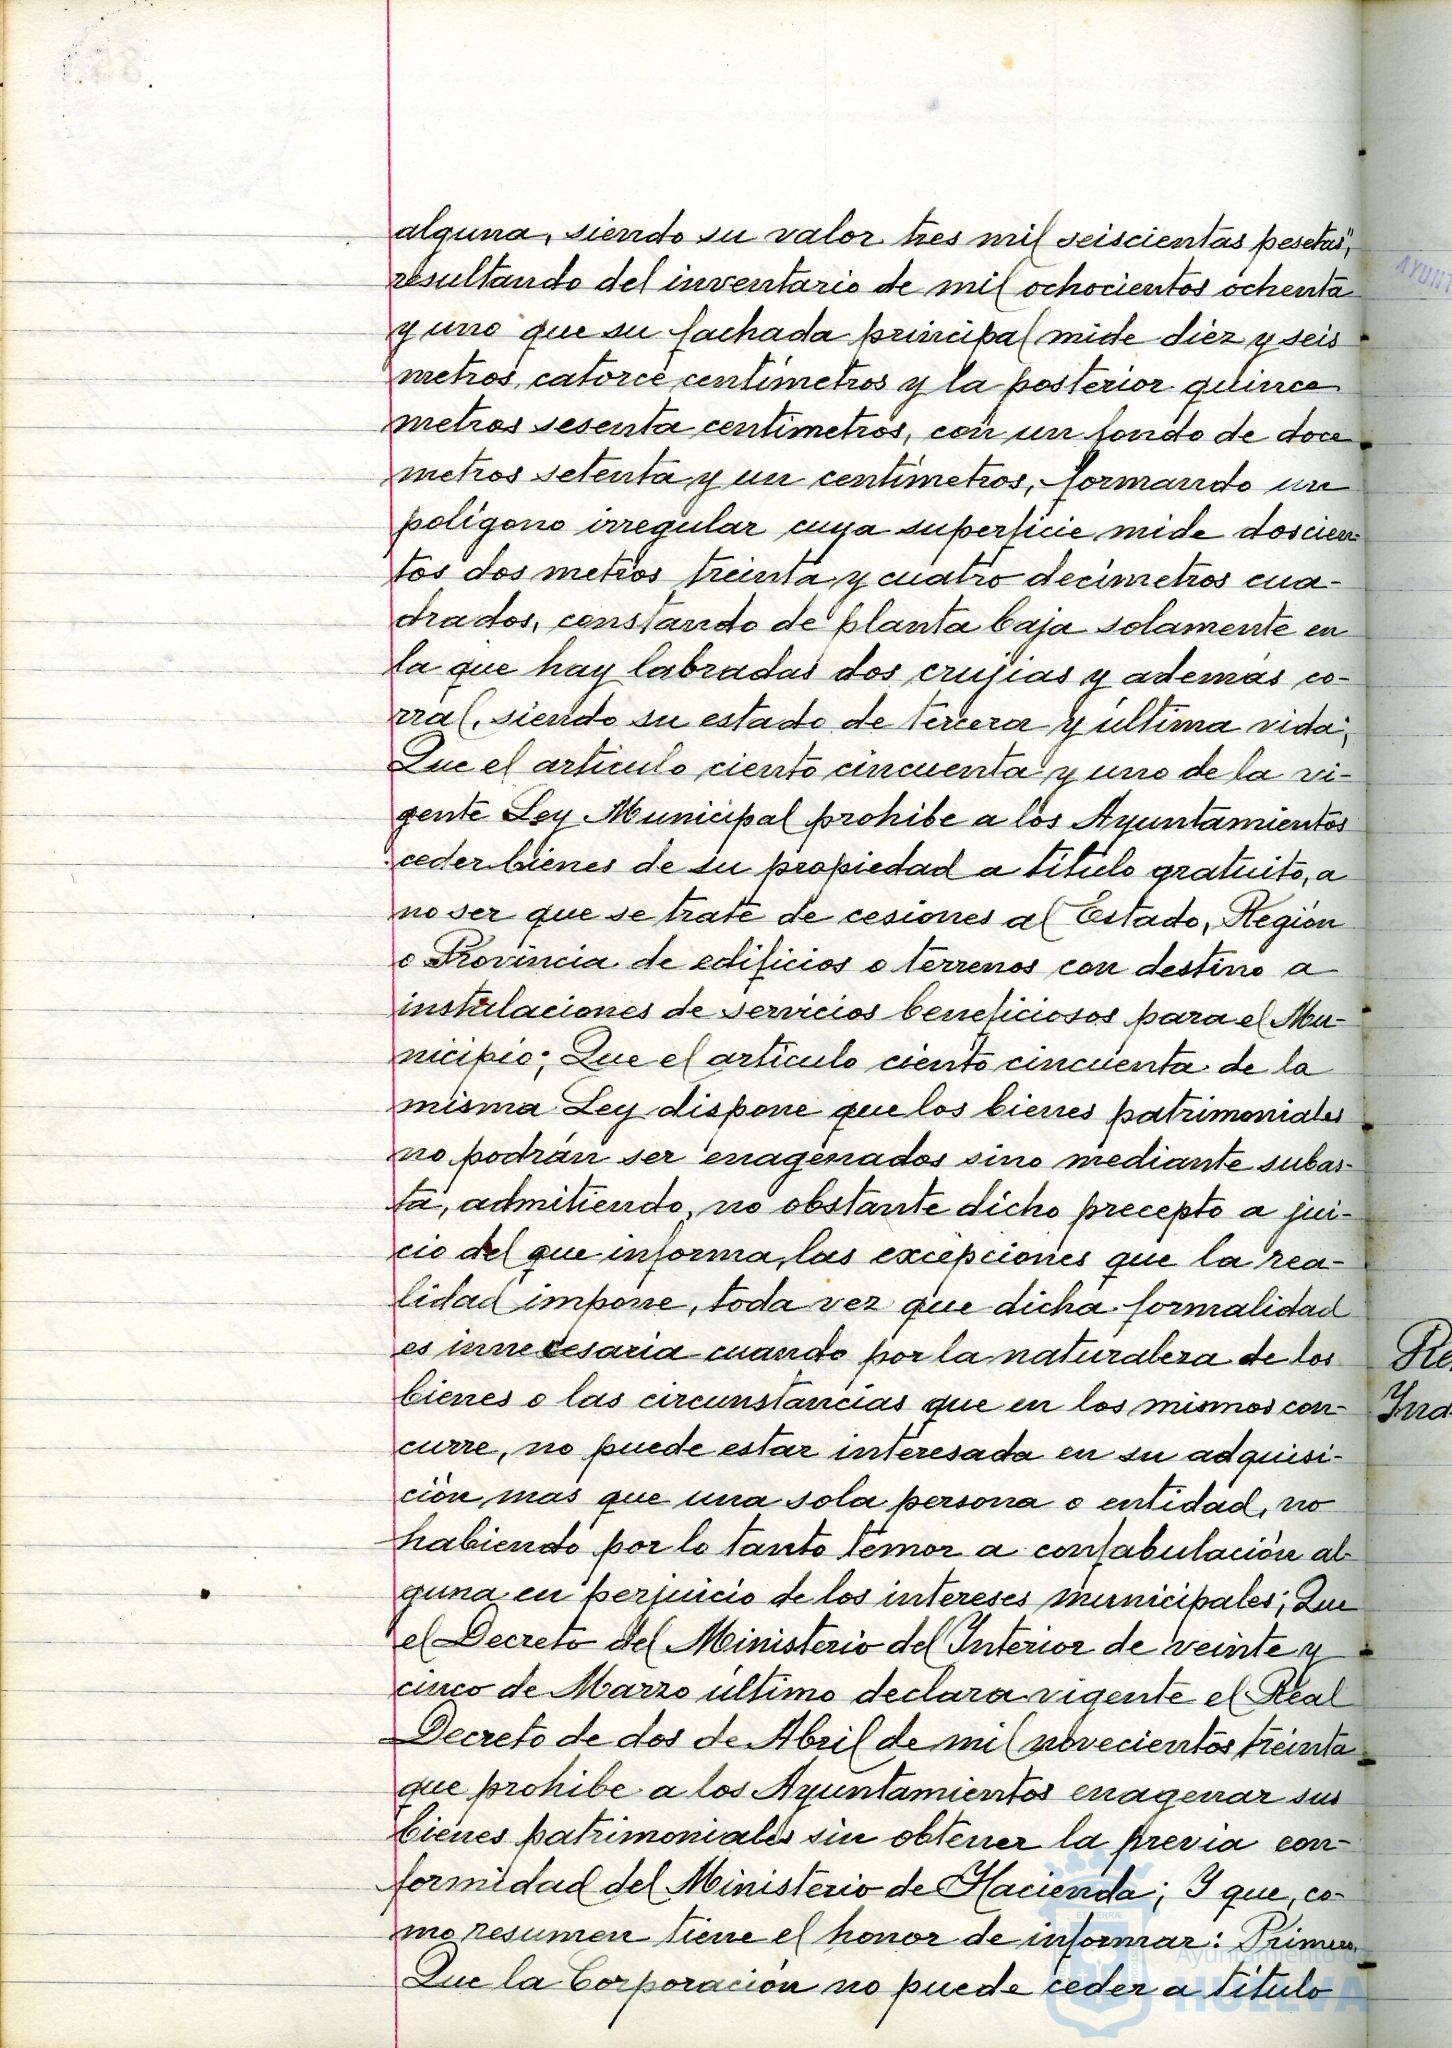 alguna, siendo su valor tres mil seiscientas pesetas",
resultando del inventario de mil ochocientos ochenta
y uno que su fachada principal mide diez y seis
metros catorce centímetros y la posterior quince
metros sesenta centímetros, con un fondo de doce
metros setenta y un centímetros, formando un
polígono irregular cuya superficie mide doscien-
tos dos metros treinta y cuatro decímetros cua-
drados, constando de planta baja solamente en
la que hay labradas dos crujías y además co-
rral, siendo su estado de tercera y última vida;
Que el artículo ciento cincuenta y uno de la vi-
gente Ley Municipal prohibe a los Ayuntamientos
ceder bienes de su propiedad a título gratuito, a
no ser que se trate de cesiones al Estado, Región
o Provincia de edificios o terrenos con destino a
instalaciones de servicios beneficiosos para el Mu-
nicipio; Que el artículo ciento cincuenta de la
misma Ley dispone que los bienes patrimoniales
no podrán ser enagenados sino mediante subas-
ta, admitiendo, no obstante dicho precepto a jui-
cio del que informa, las excepciones que la rea-
lidad impone, toda vez que dicha formalidad
es innecesaria cuando por la naturaleza de los
bienes o las circunstancias que en los mismos con-
curre, no puede estar interesada en su adquisi-
ción mas que una sola persona o entidad, no
habiendo por lo tanto temor a confabulación al-
guna en perjuicio de los intereses municipales; Que
el Decreto del Ministerio del Interior de veinte y
cinco de Marzo último declara vigente el Real
Decreto de dos de Abril de mil novecientos treinta
que prohibe a los Ayuntamientos enagenar sus
bienes patrimoniales sin obtener la previa con-
formidad del Ministerio de Hacienda; Y que, co-
mo resumen tiene el honor de informar: Primero.
Que la Corporación no puede ceder a título
AYUNT
Re
Ind
Ayuntamiento de
HUELVA